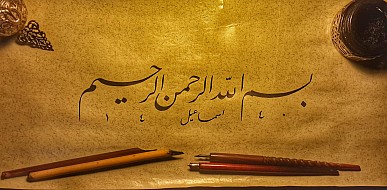 بسم الله الرحمن الرحیم
اسماعیل